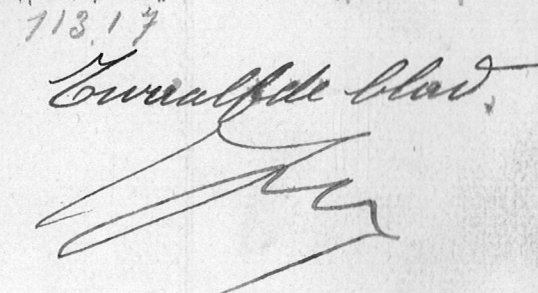 113.17
Twaalfde blad.